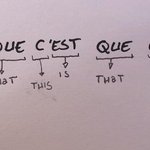 QUE C'EST QUE
THIS IS THAT